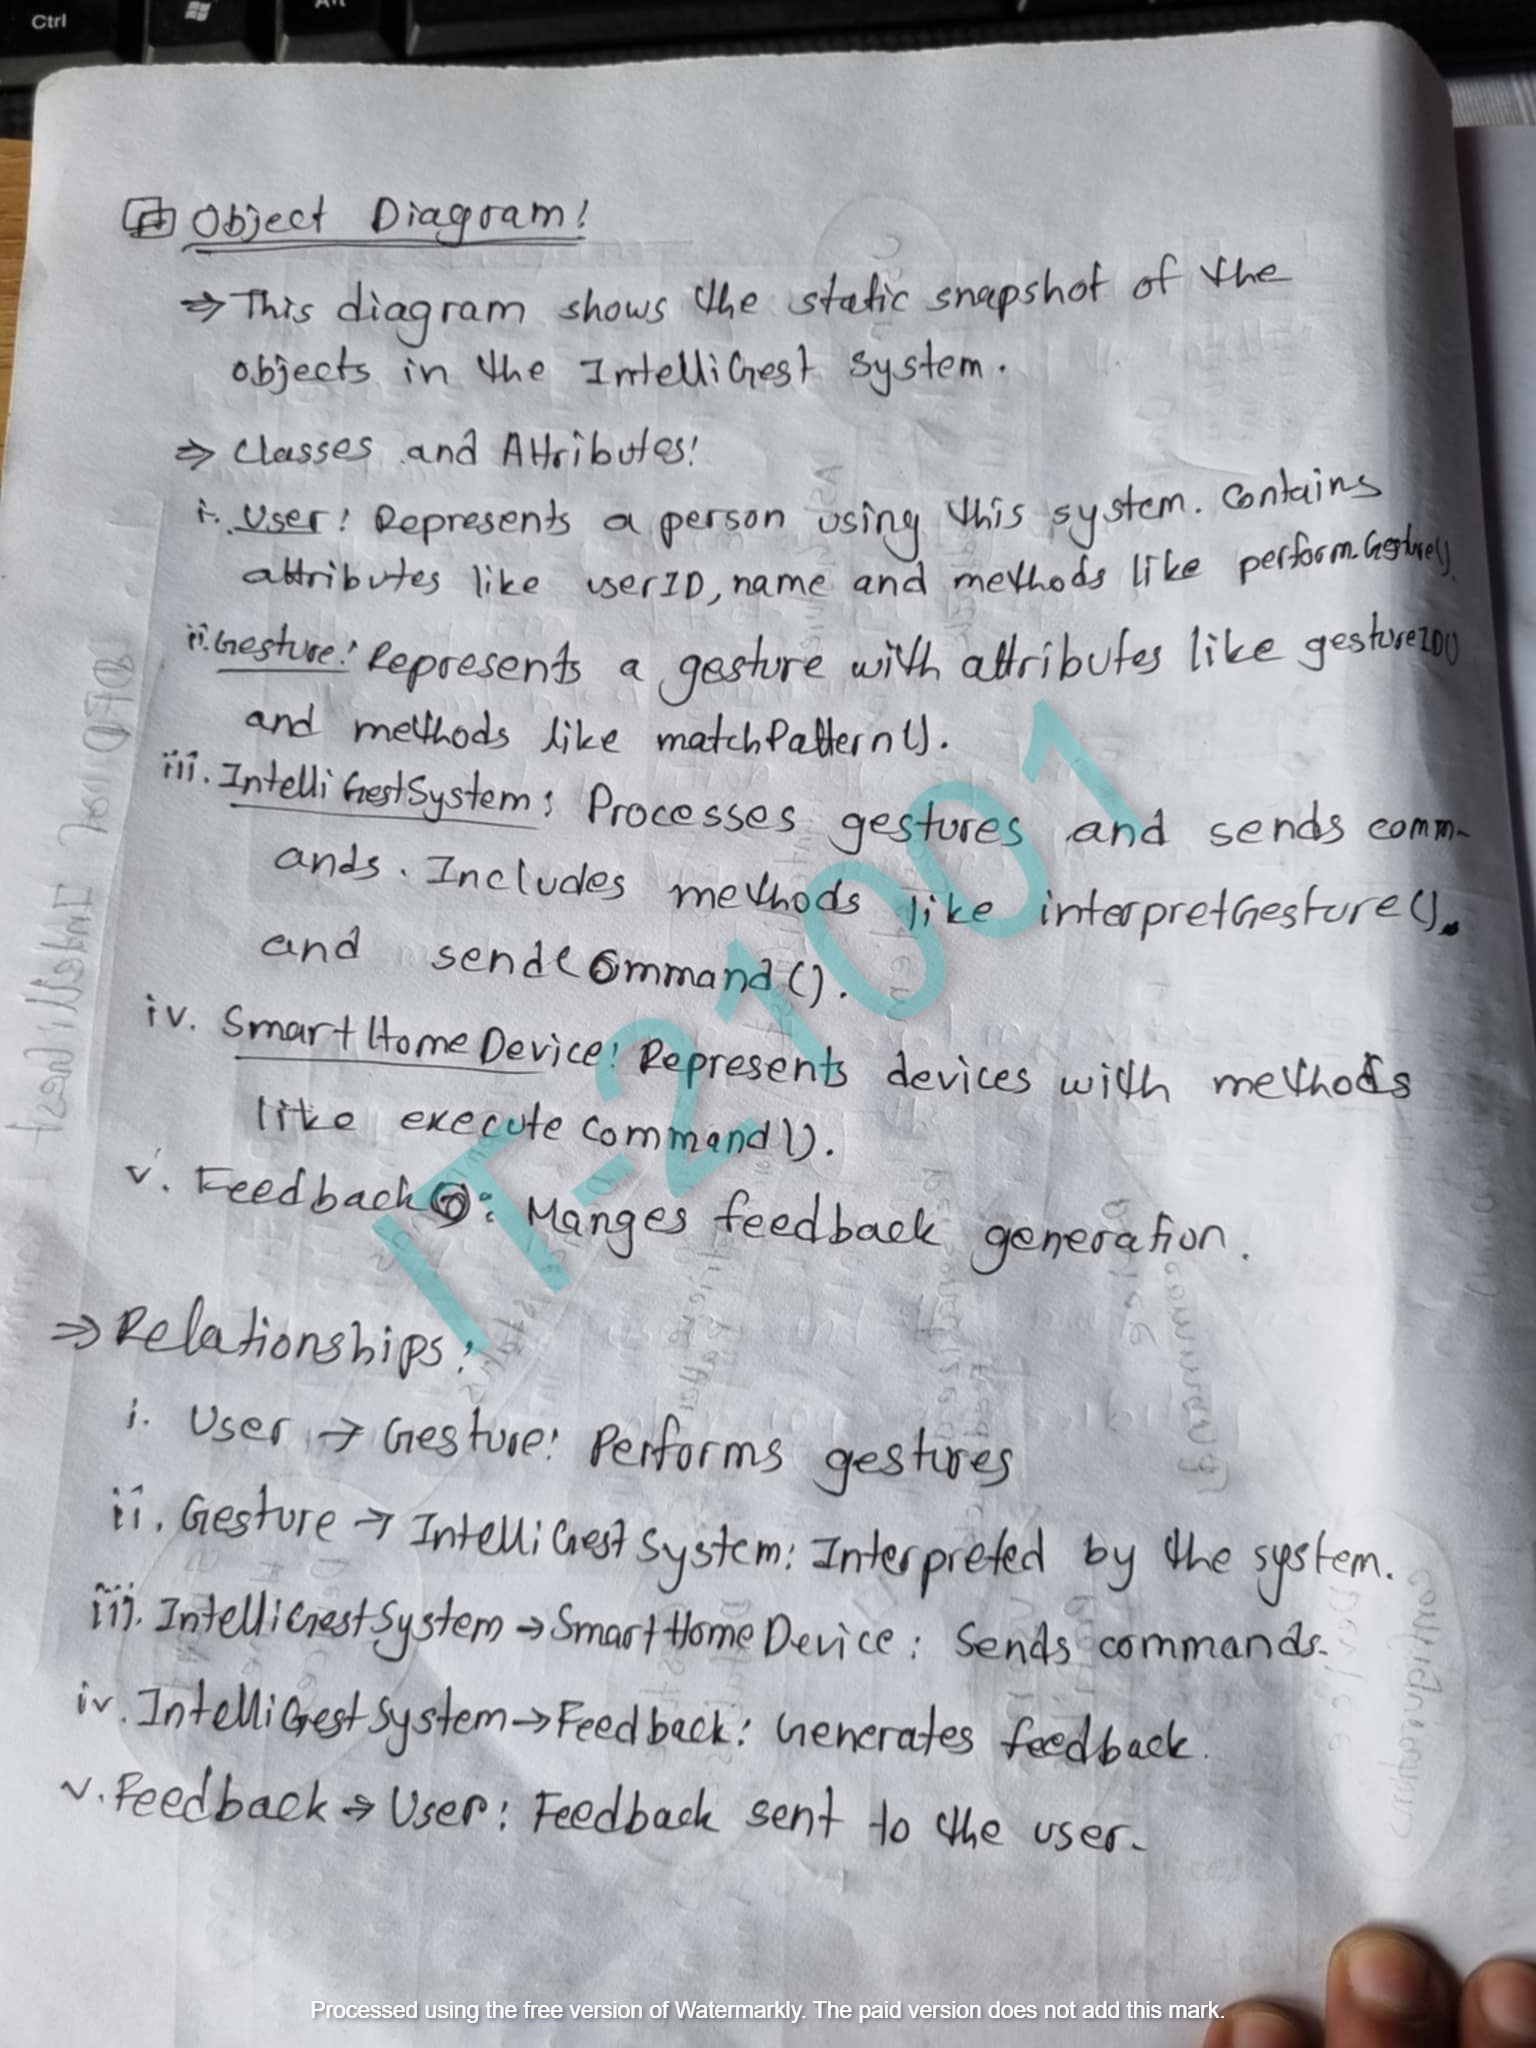 Ctrl
Object Diagram:
⇒ This diagram shows the static snapshot of the
objects in the IntelliGest System.
⇒ Classes and Attributes:
i. User: Represents a person using this system. Contains
attributes like userID, name and methods like perform.Gesture().
ii. Gesture: Represents a gesture with attributes like gestureID()
and methods like matchPattern().
iii. IntelliGestSystem: Processes gestures and sends comm-
ands. Includes methods like interpretGesture().
and sendCommand().
iv. SmartHomeDevice: Represents devices with methods
like executecommand().
v. Feedback: Manges feedback generation.
⇒ Relationships:
i. User → Gesture: Performs gestures
ii. Gesture → IntelliGestSystem: Interpreted by the system.
iii. IntelliGestSystem → SmartHomeDevice: Sends commands.
iv. IntelliGestSystem → Feedback: Generates feedback.
v. Feedback → User: Feedback sent to the user.
IT-21001
Processed using the free version of Watermarkly. The paid version does not add this mark.